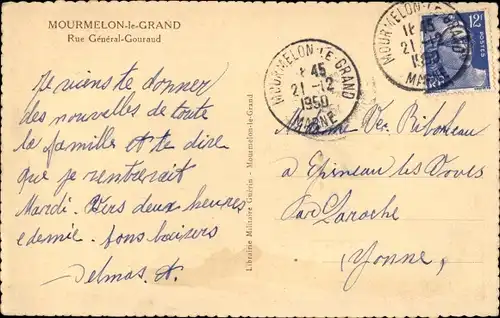 MOURMELON-le-GRAND
Rue Général-Gouraud
Je viens te donner
des nouvelles de toute
la famille et te dire
que je rentrerait
Mardi. Vers deux heures
e demie. bons baisers
Delmas. A.
Librairie Militaire Guérin - Mourmelon-le-Grand
MOURMELON-LE-GRAND
45
21-12
1950
MARNE
MOURMELON-LE-GRAND
21-12
MARNE
12
POSTES
Madame Vve
a Epineau les Voves
par Laroche
(Yonne)